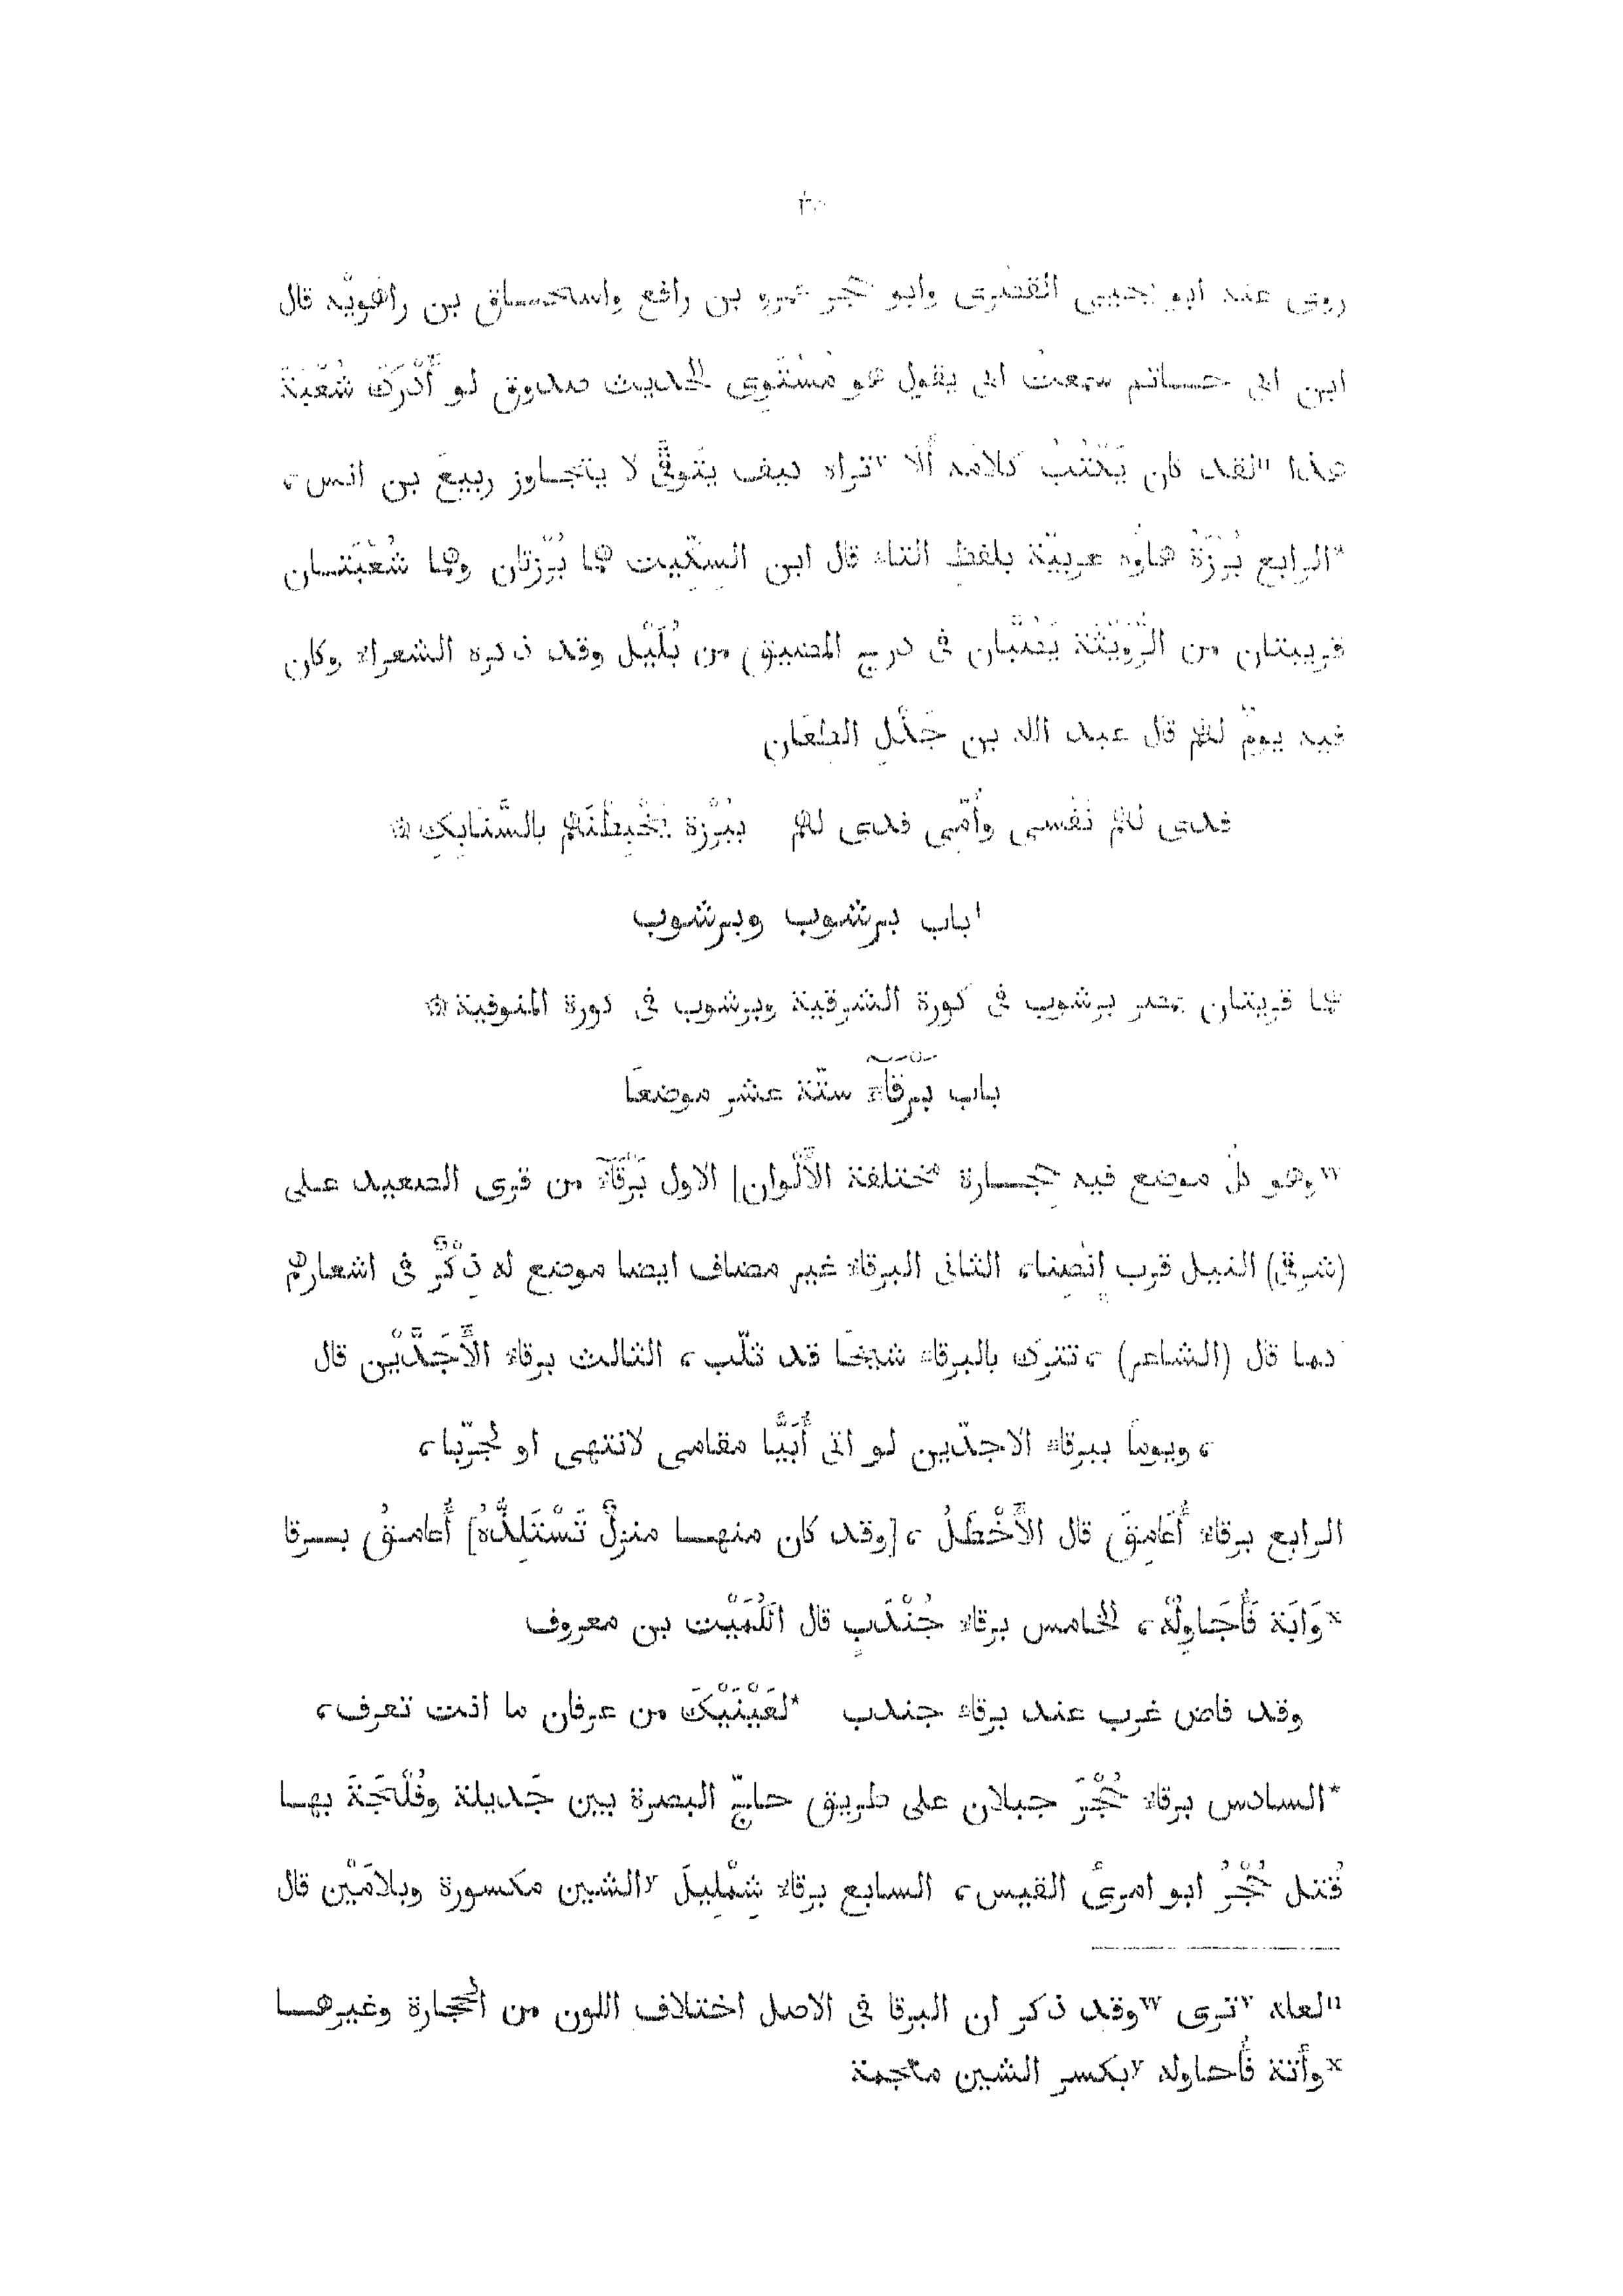 روى عنه ابو يحيى القصرى وابو حجر عمرو بن رافع واسحاق بن راهويه قال
ابن ابى حاتم سمعت ابى يقول هو مُسْتَوِى الحديث صدوق لو أَدْرَكَ شُعْبَةُ
هذا ᵘلقد كان يَكْتُبُ كلامه أَلَا ᵛتراه كيف يتوقَّى لا يتجاوز ربيعَ بن انس،
*الرابع بُرْزَةُ هاؤه عربيّة بلفظ التاء قال ابن السِكِّيت هما بُرْزتان وهما شُعْبَتان
قريبتان من الرُّوَيْثَة يَصُبَّان فى درج المضيق من بُلَيْل وقد ذكره الشعراء وكان
فيه يومٌ لهم قال عبد الله بن جَذْلِ الطِعَان
فدى لهم نَفْسى وأُمّى فدى لهم بِبُرْزة يَخْبِطْنَهم بالسَّنَابِكِ ۞
ا باب برشوب وبرشوب
هما قريتان بمصر برشوب فى كورة الشرقية وبرشوب فى كورة المنوفية ۞
باب بَرْقَاء ستّة عشر موضعًا
ʷوهو كلّ موضع فيه حِجارة مختلفة الأَلْوان| الاول بَرْقَاءُ من قرى الصعيد على
(شرقى) النيل قرب انْصِنا، الثانى البرقاءُ غير مضاف ايضا موضع له ذِكْرٌ فى اشعارهم
كما قال (الشاعر) ، تترك بالبرقاء شيخًا قد ثلّب، الثالث برقاءُ الأَجَدَّيْن قال
، ويومًا ببرقاء الاجدّين لو اتى أُبَيًّا مقامى لانتهى او لجرّبا،
الرابع برقاءُ أُعَامِقَ قال الأَخْطَلُ ، [وقد كان منهـا منزلٌ تَسْتَلِذُّهُ] أُعامقُ بـرقا
ˣوَابَة فَأَجَاوِلُهْ، الخامس برقاءُ جُنْدَبٍ قال الكُمَيْت بن معروف
وقد فاض غرب عند برقاء جندب *لعَيْنَيْكَ من عرفان ما انت تعرف،
*السادس برقاءُ حُجْرَ جبلان على طريق حاجّ البصرة بين جَديلة وفَلْجَةَ بهـا
قُتل حُجْرُ ابو امرئ القيس، السابع برقاءُ شِمْلِيلَ ʸالشين مكسورة وبلامَيْن قال
ᵘلعله ᵛترى ʷوقد ذكر ان البرقا فى الاصل اختلاف اللون من الحجارة وغيرهـا
ˣوأتة فأحاوله ʸبكسر الشين معجمة